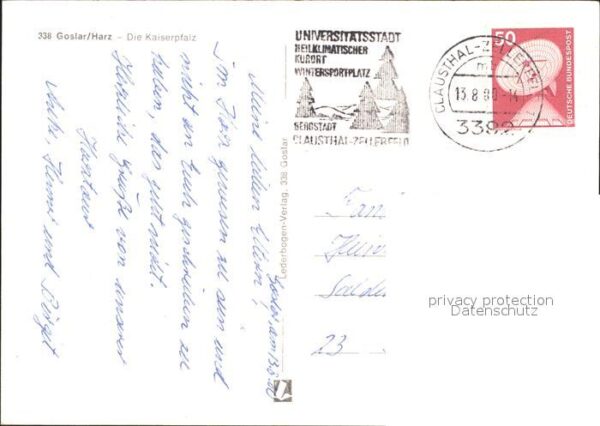 338 Goslar/Harz - Die Kaiserpfalz
Goslar am 13.8.80
Meine lieben Eltern!
Im Harz gewesen zu sein und
nicht an Euch geschrieben zu
haben, das geht nicht.
Herzliche Grüße von unserer
Harztour
Anke, und Birgit
Lederbogen-Verlag, 338 Goslar
UNIVERSITÄTSSTADT
HEILKLIMATISCHER
KURORT
WINTERSPORTPLATZ
BERGSTADT
CLAUSTHAL-ZELLERFELD
CLAUSTHAL-ZELLERFELD
13.8.80-14
3392
50
DEUTSCHE BUNDESPOST
Fam
23
privacy protection
Datenschutz